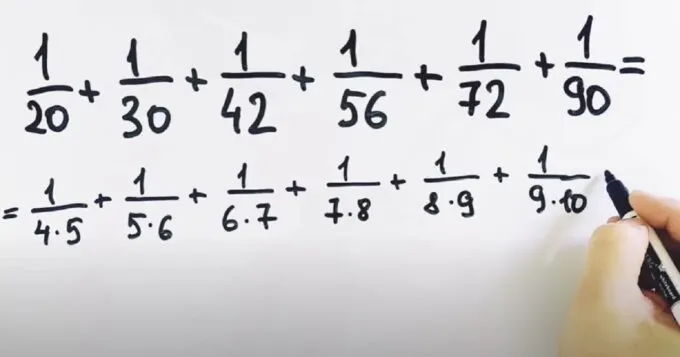 1/20 + 1/30 + 1/42 + 1/56 + 1/72 + 1/90 =
= 1/4·5 + 1/5·6 + 1/6·7 + 1/7·8 + 1/8·9 + 1/9·10